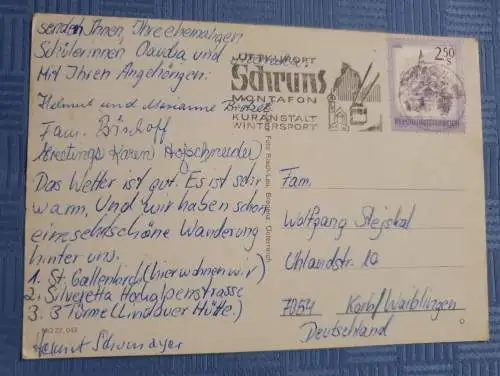 senden Ihnen, Ihre ehemaligen
Schülerinnen Claudia und
Mit Ihren Angehörigen:
Helmut und Marianne
Fam. Bischoff
Greetings Karen Hofschneider)
Das Wetter ist gut. Es ist sehr
warm. Und wir haben schon
eine sehr schöne Wanderung
hinter uns.
1. St. Gallenkirch (hier wohnen wir)
2. Silveretta Hochalpenstrasse
3. 3 Türme (Lindauer Hütte.)
Helmut Schumayer
LUFTKURORT
Schruns
MONTAFON
KURANSTALT
WINTERSPORT
2.50
S
REPUBLIK ÖSTERREICH
Fam.
Wolfgang Stejskal
Uhlandstr. 10
7054 Korb/Waiblingen
Deutschland